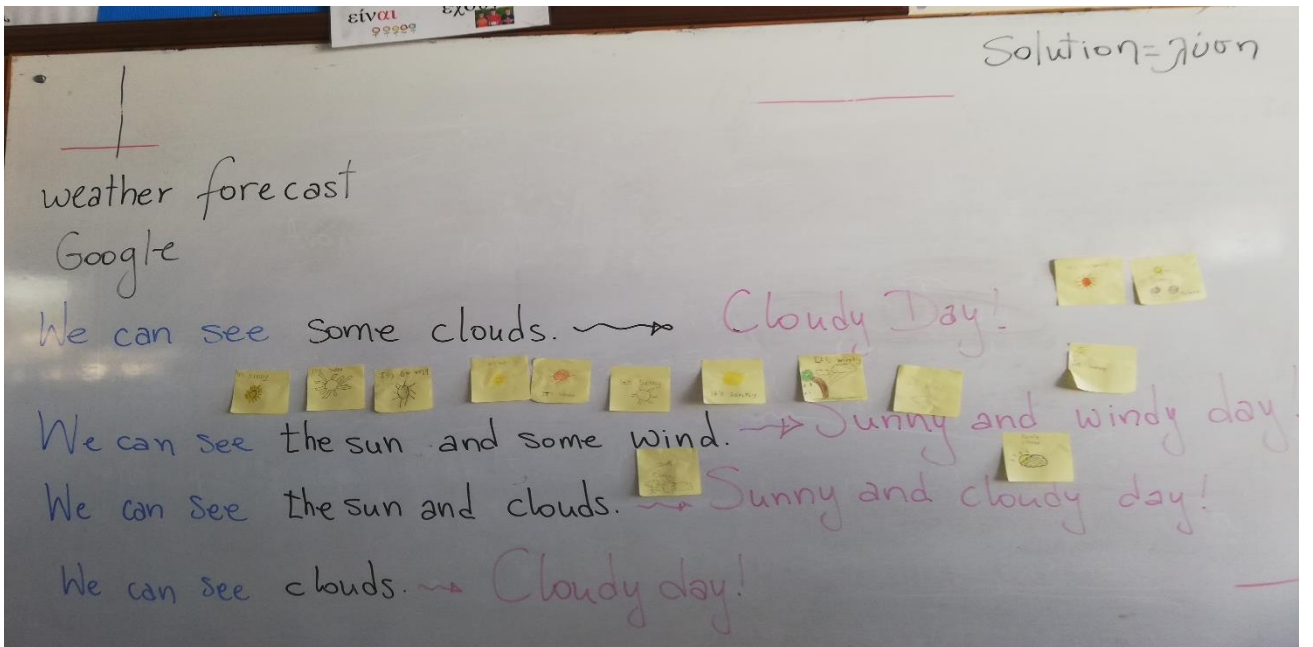 είναι
Solution=λύση
weather forecast
Google
We can see some clouds. Cloudy Day!
We can see the sun and some wind. Sunny and windy day!
We can see the sun and clouds. Sunny and cloudy day!
We can see clouds. Cloudy day!